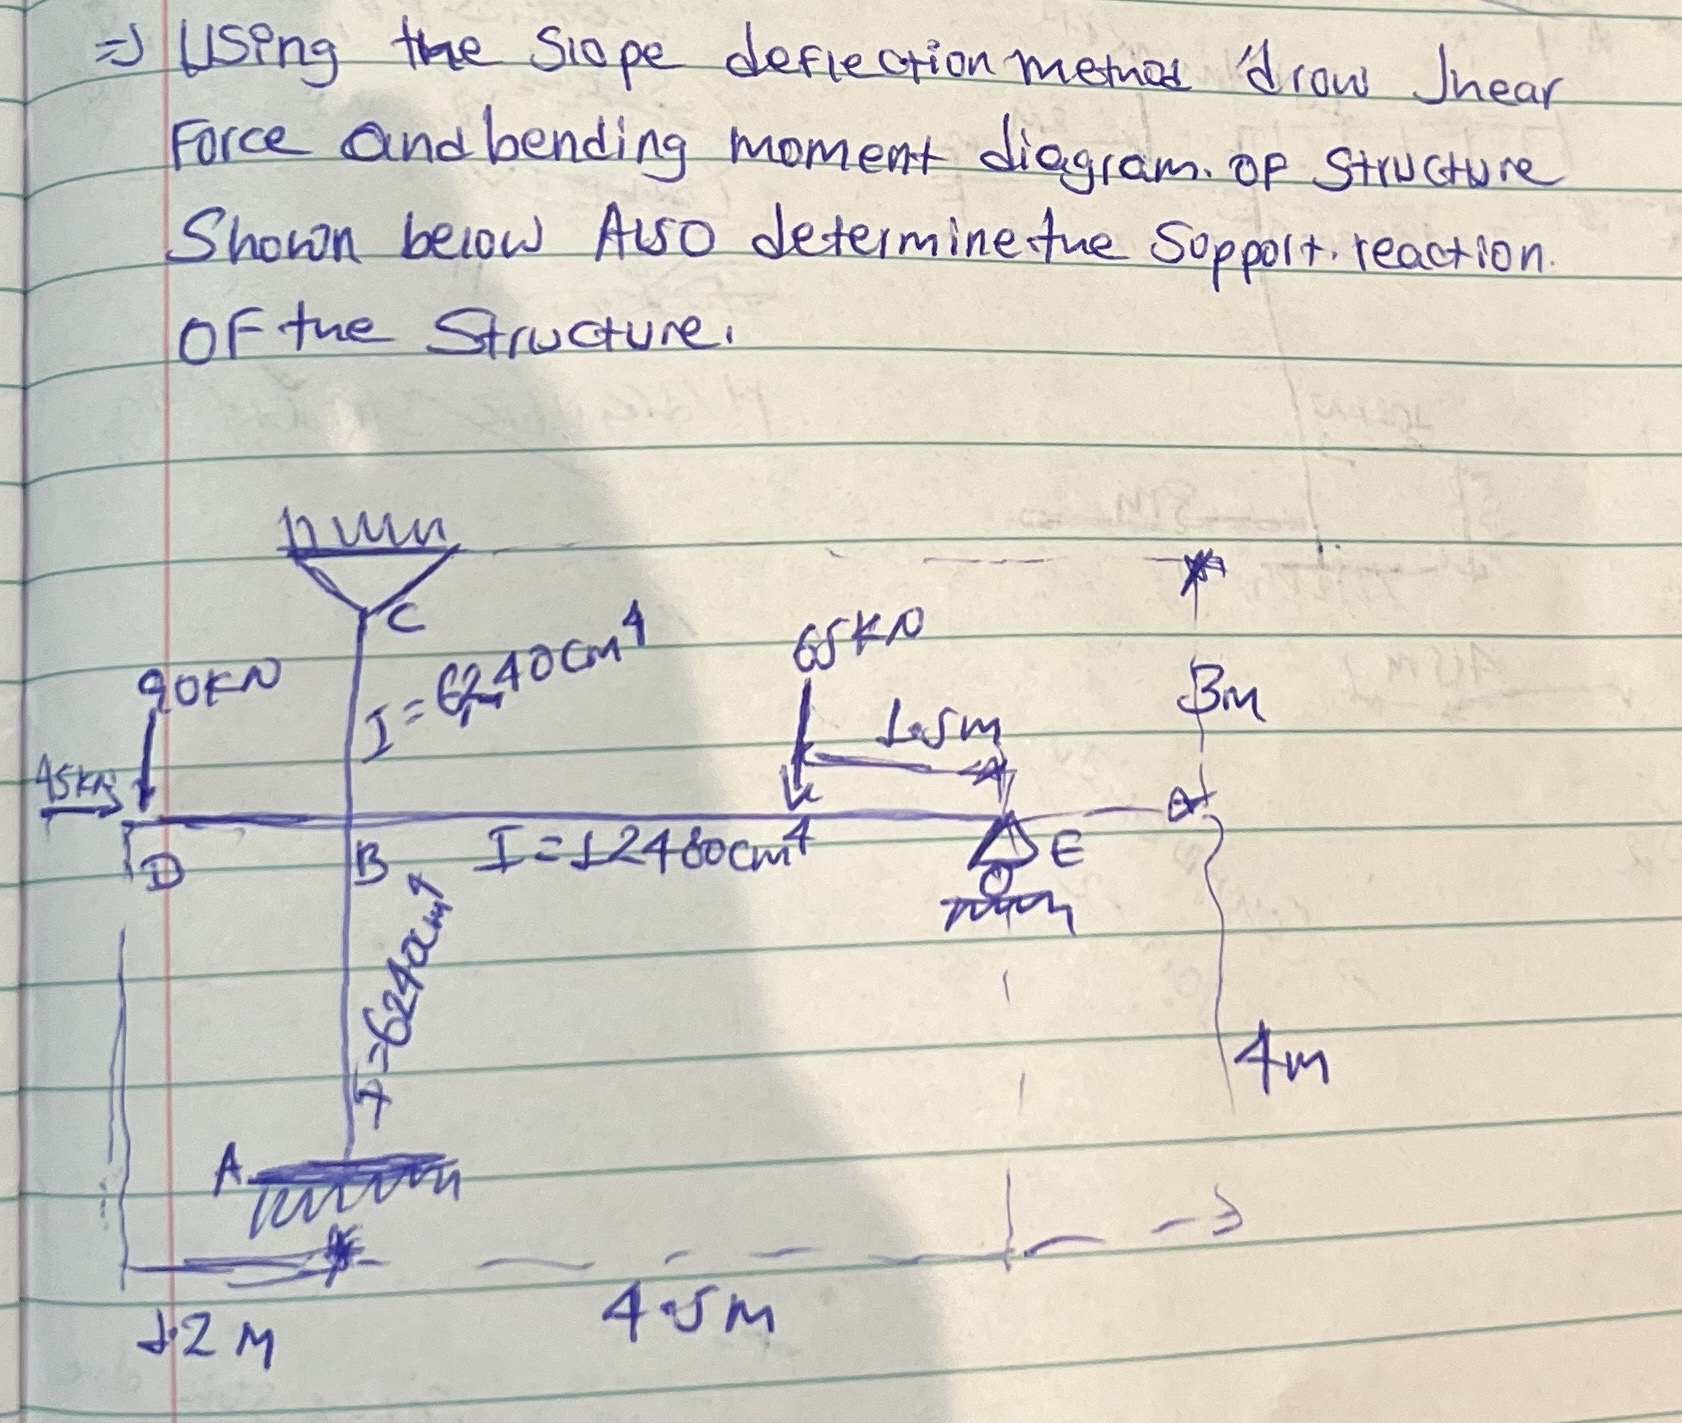 => Using the Slope deflection method draw Shear
Force and bending moment diagram. OF Structure
Shown below Also determine the Support. reaction.
OF the Structure.
C
65KN
90KN
I = 6240cm⁴
3m
1.5m
45KN
D
B
I = 12480cm⁴
E
I = 6240cm⁴
4m
A
1.2 M
4.5m